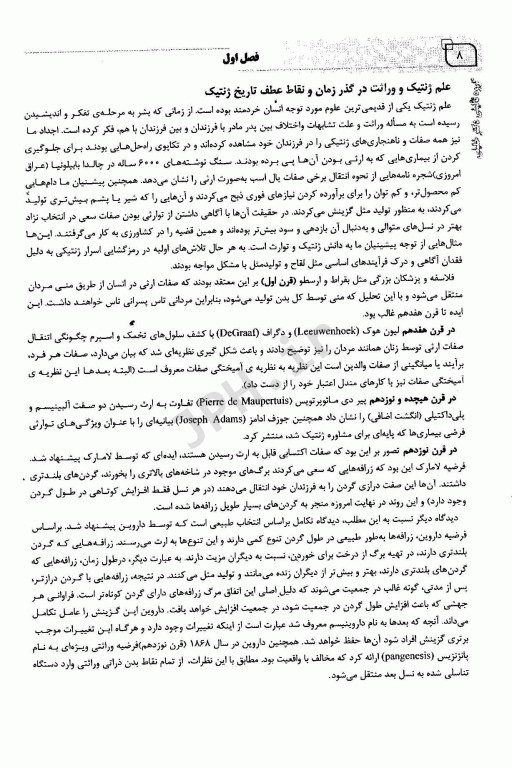 ۸
فصل اول
علم ژنتیک و وراثت در گذر زمان و نقاط عطف تاریخ ژنتیک
علم ژنتیک یکی از قدیمی‌ترین علوم مورد توجه انسان خردمند بوده است. از زمانی که بشر به مرحله‌ی تفکر و اندیشیدن
رسیده است به مسأله وراثت و علت تشابهات واختلاف بین پدر مادر با فرزندان و بین فرزندان با هم، فکر کرده است. اجداد ما
نیز همه صفات و ناهنجاری‌های ژنتیکی را در فرزندان خود مشاهده کرده‌اند و در تکاپوی راه‌حل‌هایی بوده‌اند برای جلوگیری
کردن از بیماری‌هایی که به ارثی بودن آن‌ها پی برده بودند. سنگ نوشته‌های ۶۰۰۰ ساله در چالدا بابیلونیا (عراق
امروزی)شجره نامه‌هایی از نحوه انتقال برخی صفات یال اسب به‌صورت ارثی را نشان می‌دهد. همچنین پیشنیان ما دام‌هایی
کم محصول‌تر، و کم توان را برای برآورده کردن نیازهای فوری ذبح می‌کردند و آن‌هایی را که شیر یا پشم بیش‌تری تولید
می‌کردند، به منظور تولید مثل گزینش می‌کردند. در حقیقت آن‌ها با آگاهی داشتن از توارثی بودن صفات سعی در انتخاب نژاد
بهتر در نسل‌های متوالی و به‌دنبال آن بازدهی و سود بیش‌تر بوده‌اند و همین قضیه را در کشاورزی به کار می‌گرفتند. این‌ها
مثال‌هایی از توجه پیشینیان ما به دانش ژنتیک و توارث است. به هر حال تلاش‌های اولیه در رمزگشایی اسرار ژنتیکی به دلیل
فقدان آگاهی و درک فرآیندهای اساسی مثل لقاح و تولیدمثل با مشکل مواجه بودند.
فلاسفه و پزشکان بزرگی مثل بقراط و ارسطو (قرن اول) بر این معتقد بودند که صفات ارثی در انسان از طریق منی مردان
منتقل می‌شود و با این تحلیل که منی توسط کل بدن تولید می‌شود، بنابراین مردانی تاس پسرانی تاس خواهند داشت. این
ایده تا قرن هفدهم غالب بود.
در قرن هفدهم لیون هوک (Leeuwenhoek) و دگراف (DeGraaf) با کشف سلول‌های تخمک و اسپرم چگونگی انتقال
صفات ارثی توسط زنان همانند مردان را نیز توضیح دادند و باعث شکل گیری نظریه‌ای شد که بیان می‌دارد، صفات هر فرد،
برآیند یا میانگینی از صفات والدین است این نظریه به نظریه ی آمیختگی صفات معروف است (البته بعدها این نظریه ی
آمیختگی صفات نیز با کارهای مندل اعتبار خود را از دست داد)
در قرن هیجده و نوزدهم پیر دی مائوپرتویس (Pierre de Maupertuis) تفاوت به ارث رسیدن دو صفت آلبینیسم و
پلی‌داکتیلی (انگشت اضافی) را نشان داد همچنین جوزف ادامز (Joseph Adams) بیانیه‌ای را با عنوان ویژگی‌های توارثی
فرضی بیماری‌ها که پایه‌ای برای مشاوره ژنتیک شد، منتشر کرد.
در قرن نوزدهم تصور بر این بود که صفات اکتسابی قابل به ارث رسیدن هستند، ایده‌ای که توسط لامارک پیشنهاد شد.
فرضیه لامارک این بود که زرافه‌هایی که سعی می‌کردند برگ‌های موجود در شاخه‌های بالاتری را بخورند، گردن‌های بلندتری
داشتند. آن‌ها این صفت درازی گردن را به فرزندان خود انتقال می‌دهند (در هر نسل فقط افزایش کوتاهی در طول گردن
وجود دارد) و این روند در نهایت امروزه منجر به گردن‌های بسیار طویل زرافه‌ها شده است.
دیدگاه دیگر نسبت به این مطلب، دیدگاه تکامل براساس انتخاب طبیعی است که توسط داروین پیشنهاد شد. براساس
فرضیه داروین، زرافه‌ها به‌طور طبیعی در طول گردن تنوع کمی دارند و این تنوع‌ها به ارث می‌رسند. زرافه‌هایی که گردن
بلندتری دارند، در تهیه برگ از درخت برای خوردن، نسبت به دیگران مزیت دارند. به عبارت دیگر، درطول زمان، زرافه‌هایی که
گردن‌های بلندتری دارند، بهتر و بیش‌تر از دیگران زنده می‌مانند و تولید مثل می‌کنند. در نتیجه، زرافه‌هایی با گردن درازتر،
پس از مدتی، گونه غالب در جمعیت می‌شوند که دلیل اصلی این اتفاق مرگ زرافه‌های دارای گردن کوتاه‌تر است. فراوانی هر
جهشی که باعث افزایش طول گردن در جمعیت شود، در جمعیت افزایش خواهد یافت. داروین این گزینش را عامل تکامل
می‌داند. آنچه که بعدها به نام داروینیسم معروف شد عبارت است از اینکه تغییرات وجود دارد و هرگاه این تغییرات موجب
برتری گزینش افراد شود آن‌ها حفظ خواهد شد. همچنین داروین در سال ۱۸۶۸ (قرن نوزدهم)فرضیه وراثتی ویژه‌ای به نام
پانژنزیس (pangenesis) ارائه کرد که مخالف با واقعیت بود. مطابق با این نظرات، از تمام نقاط بدن ذراتی وراثتی وارد دستگاه
تناسلی شده به نسل بعد منتقل می‌شود.